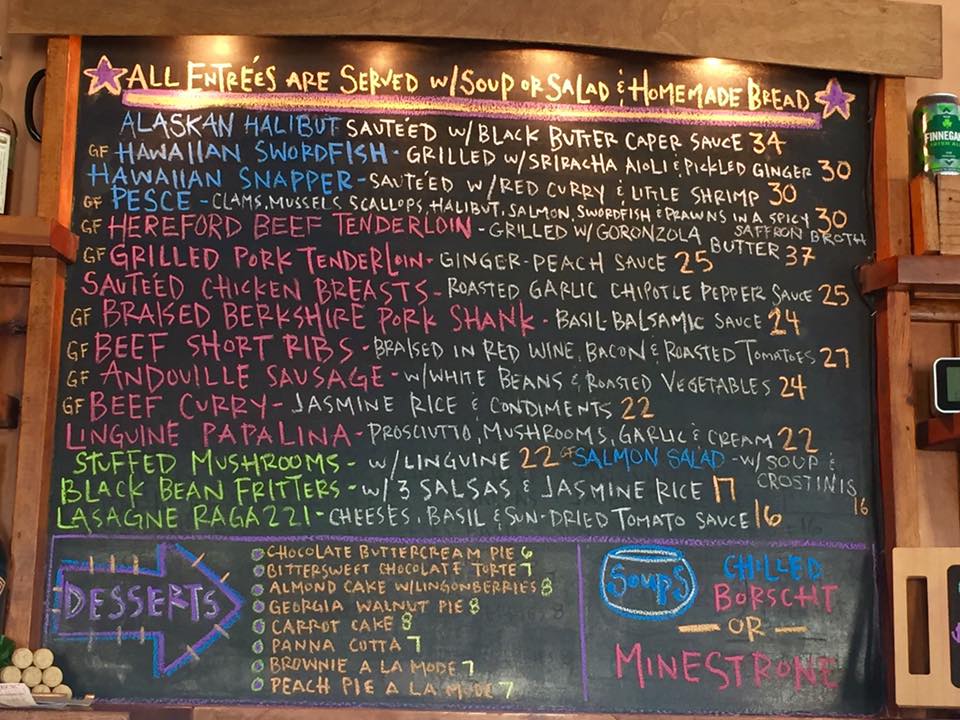 ALL ENTRÉES ARE SERVED W/SOUP OR SALAD & HOMEMADE BREAD
ALASKAN HALIBUT SAUTÉED W/BLACK BUTTER CAPER SAUCE 34
GF HAWAIIAN SWORDFISH - GRILLED W/SRIRACHA AIOLI & PICKLED GINGER 30
HAWAIIAN SNAPPER - SAUTÉED W/RED CURRY & LITTLE SHRIMP 30
GF PESCE - CLAMS, MUSSELS, SCALLOPS, HALIBUT, SALMON, SWORDFISH & PRAWNS IN A SPICY SAFFRON BROTH 30
GF HEREFORD BEEF TENDERLOIN - GRILLED W/GORONZOLA BUTTER 37
GF GRILLED PORK TENDERLOIN - GINGER-PEACH SAUCE 25
SAUTÉED CHICKEN BREASTS - ROASTED GARLIC CHIPOTLE PEPPER SAUCE 25
GF BRAISED BERKSHIRE PORK SHANK - BASIL-BALSAMIC SAUCE 24
GF BEEF SHORT RIBS - BRAISED IN RED WINE, BACON & ROASTED TOMATOES 27
GF ANDOUILLE SAUSAGE - W/WHITE BEANS & ROASTED VEGETABLES 24
GF BEEF CURRY - JASMINE RICE & CONDIMENTS 22
LINGUINE PAPALINA - PROSCIUTTO, MUSHROOMS, GARLIC & CREAM 22
STUFFED MUSHROOMS - W/LINGUINE 22
GF SALMON SALAD - W/SOUP &
CROSTINIS 16
BLACK BEAN FRITTERS - W/3 SALSAS & JASMINE RICE 17
LASAGNE RAGAZZI - CHEESES, BASIL & SUN-DRIED TOMATO SAUCE 16
DESSERTS
CHOCOLATE BUTTERCREAM PIE 6
BITTERSWEET CHOCOLATE TORTE 7
ALMOND CAKE W/LINGONBERRIES 8
GEORGIA WALNUT PIE 8
CARROT CAKE 8
PANNA COTTA 7
BROWNIE A LA MODE 7
PEACH PIE A LA MODE 7
SOUPS
CHILLED
BORSCHT
- OR -
MINESTRONE
FINNEGANS
IRISH ALE